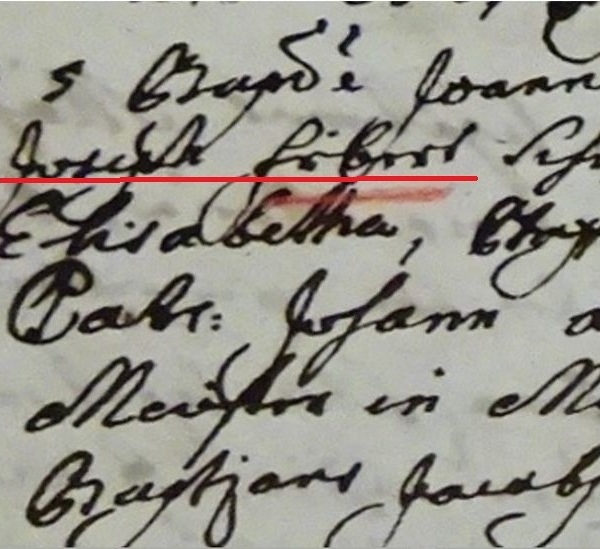 5 Bapd: e Joann
Joseph Sch
Elisabetha,
Patr: Johann a
Meister in M
Jacob